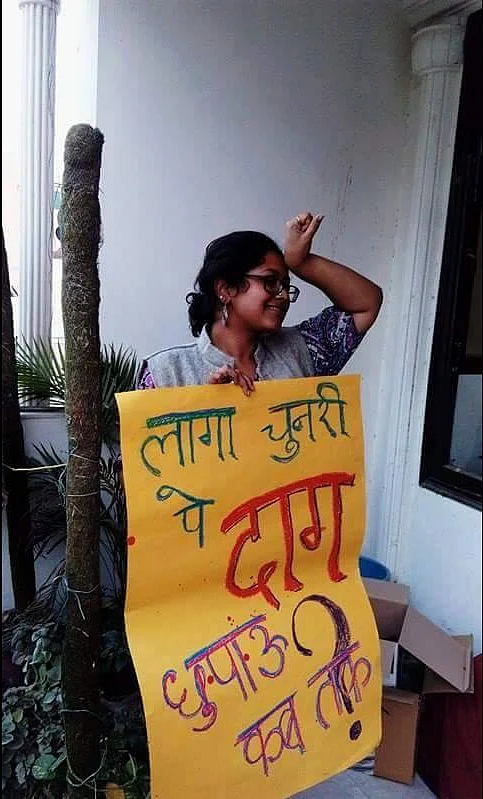 लागा चुनरी
पे दाग
छुपाऊ
कब तक?